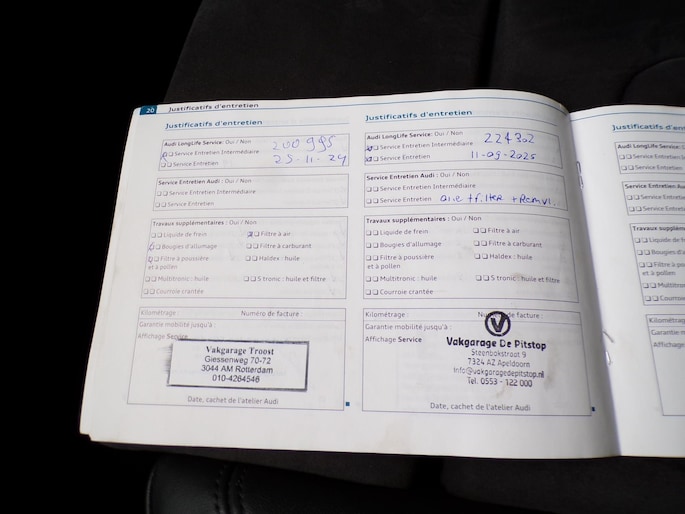 20 Justificatifs d'entretien
Justificatifs d'entretien
Audi LongLife Service: Oui / Non 200 995
Service Entretien Intermédiaire
Service Entretien 25-11-24
Service Entretien Audi : Oui / Non
Service Entretien Intermédiaire
Service Entretien
Travaux supplémentaires : Oui / Non
Liquide de frein Filtre à air
Bougies d'allumage Filtre à carburant
Filtre à poussière et à pollen Haldex : huile
Multitronic : huile S tronic : huile et filtre
Courroie crantée
Kilométrage : Numéro de facture :
Garantie mobilité jusqu'à :
Affichage Service
Vakgarage Troost
Giessenweg 70-72
3044 AM Rotterdam
010-4264546
Date, cachet de l'atelier Audi
Justificatifs d'entretien
Audi LongLife Service: Oui / Non 224302
Service Entretien Intermédiaire
Service Entretien 11-09-2025
Service Entretien Audi : Oui / Non
Service Entretien Intermédiaire
Service Entretien olie + filter + Remvl.
Travaux supplémentaires : Oui / Non
Liquide de frein Filtre à air
Bougies d'allumage Filtre à carburant
Filtre à poussière et à pollen Haldex : huile
Multitronic : huile S tronic : huile et filtre
Courroie crantée
Kilométrage : Numéro de facture :
Garantie mobilité jusqu'à :
Affichage Service
Vakgarage De Pitstop
Steenbokstraat 9
7324 AZ Apeldoorn
info@vakgaragedepitstop.nl
Tel. 0553 - 122 000
Date, cachet de l'atelier Audi
Justificatifs d'
Audi LongLife Service: O
Service Entretien In
Service Entretien
Service Entretien Audi
Service Entretien
Service Entretien
Travaux supplém
Liquide de fre
Bougies d'allu
Filtre à pous
et à pollen
Multitroni
Courroie
Kilométrage
Garantie mo
Affichage